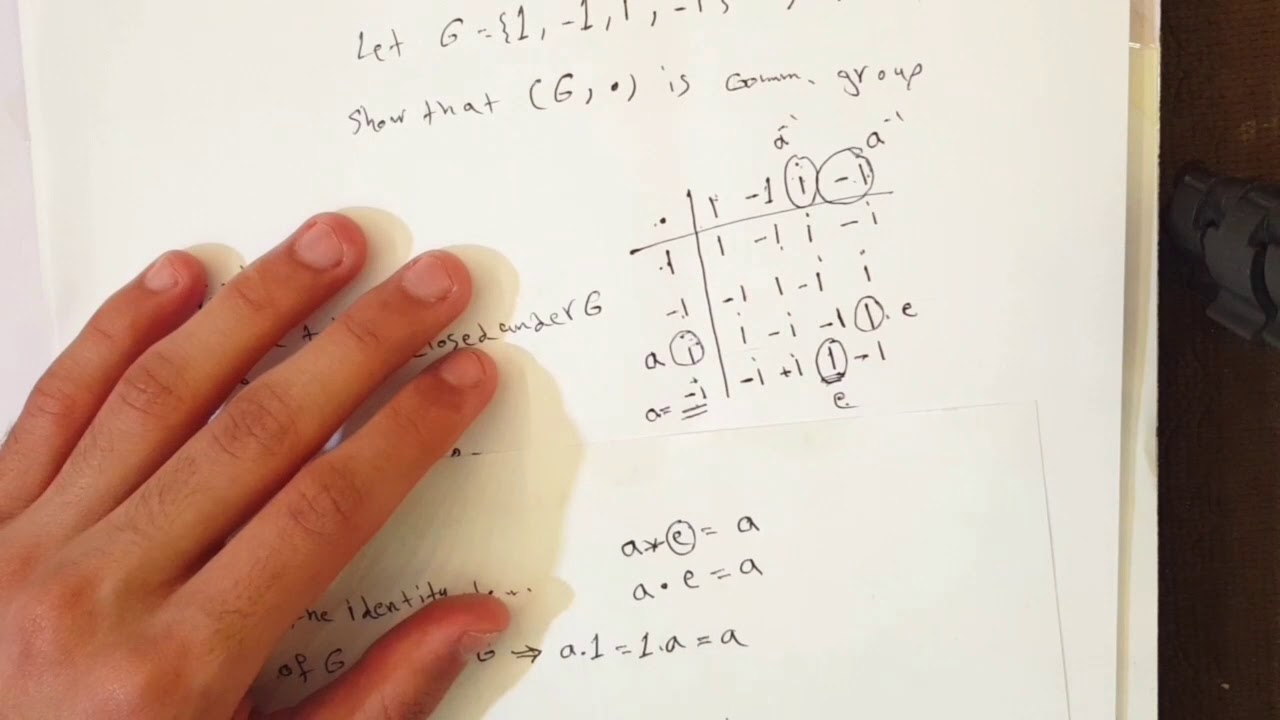 Let G={1, -1, i, -i}
Show that (G, •) is Comm. group
a⁻¹ a⁻¹
• 1 -1 i -i
1 1 -1 i -i
-1 -1 1 -i i
a i i -i -1 1 e
a= -i -i +i 1 -1
e
closed under G
a*e = a
a • e = a
the identity
of G ⇒ a.1 = 1.a = a